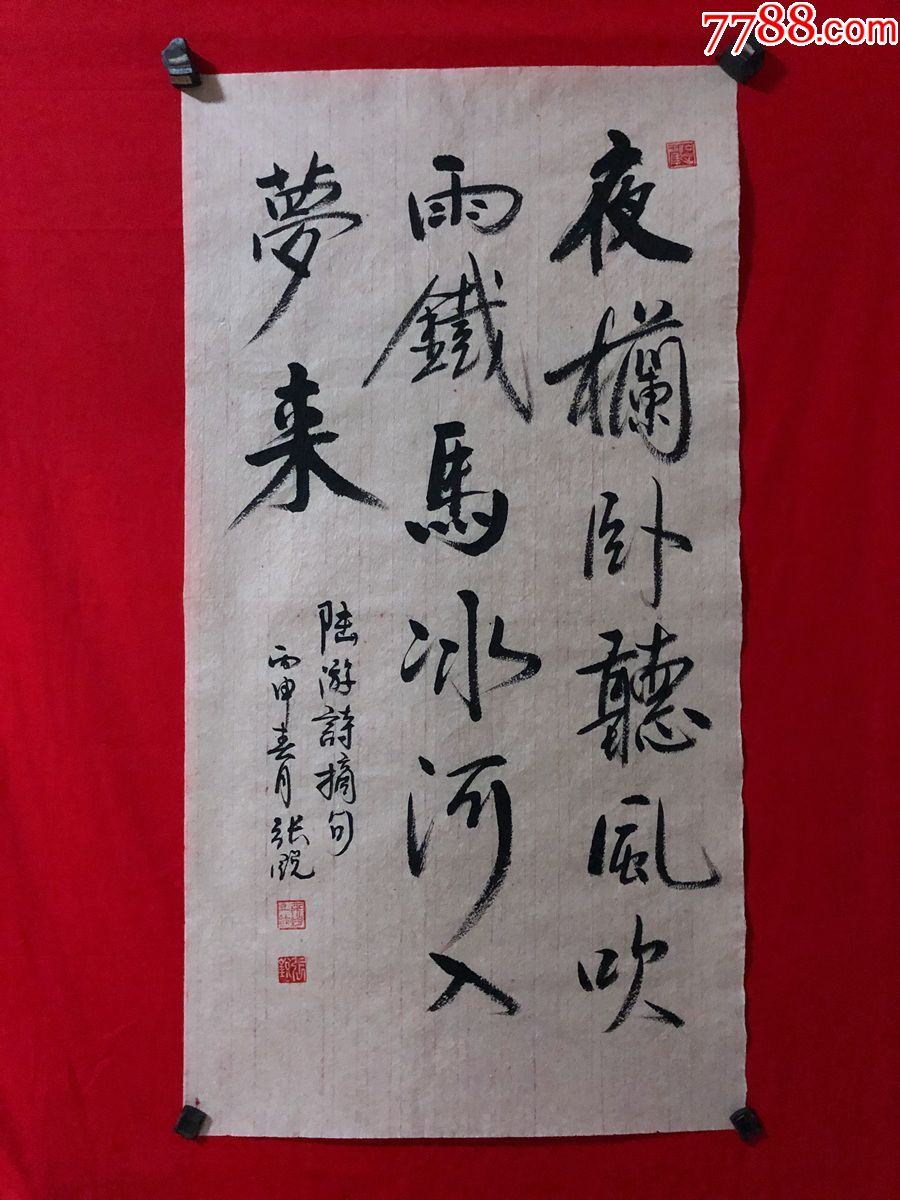 7788.com
夜欄卧聽風吹
雨鐵馬冰河入
夢来
陆游詩摘句
丙申春月张